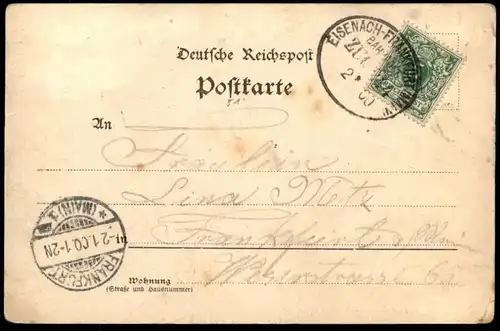 Deutsche Reichspost
Postkarte
EISENACH-FRANKFURT (MAIN)
BAHNPOST
ZUG
2 1 00
An
Fräulein
Lina Metz
in Frankfurt a/Main
Weserstrasse
Wohnung
(Straße und Hausnummer)
FRANKFURT (MAIN) 1
-2.1.00.1-2N